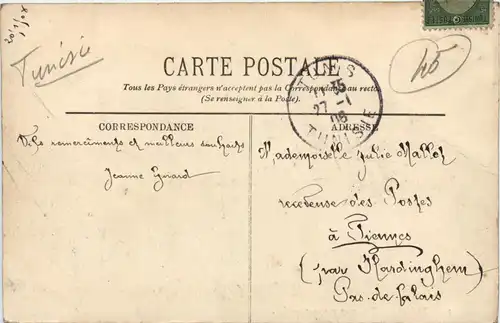 Tunisie
45
CARTE POSTALE
Tous les Pays étrangers n'acceptent pas la Correspondance au recto
(Se renseigner à la Poste).
TUNIS
11 35
27 - 1
TUNISIE
CORRESPONDANCE
ADRESSE
Vifs remerciments et meilleurs souhaits
Jeanne
Mademoiselle Julie
receveuse des Postes
à Fiennes
(par Hardinghem)
Pas-de-Calais